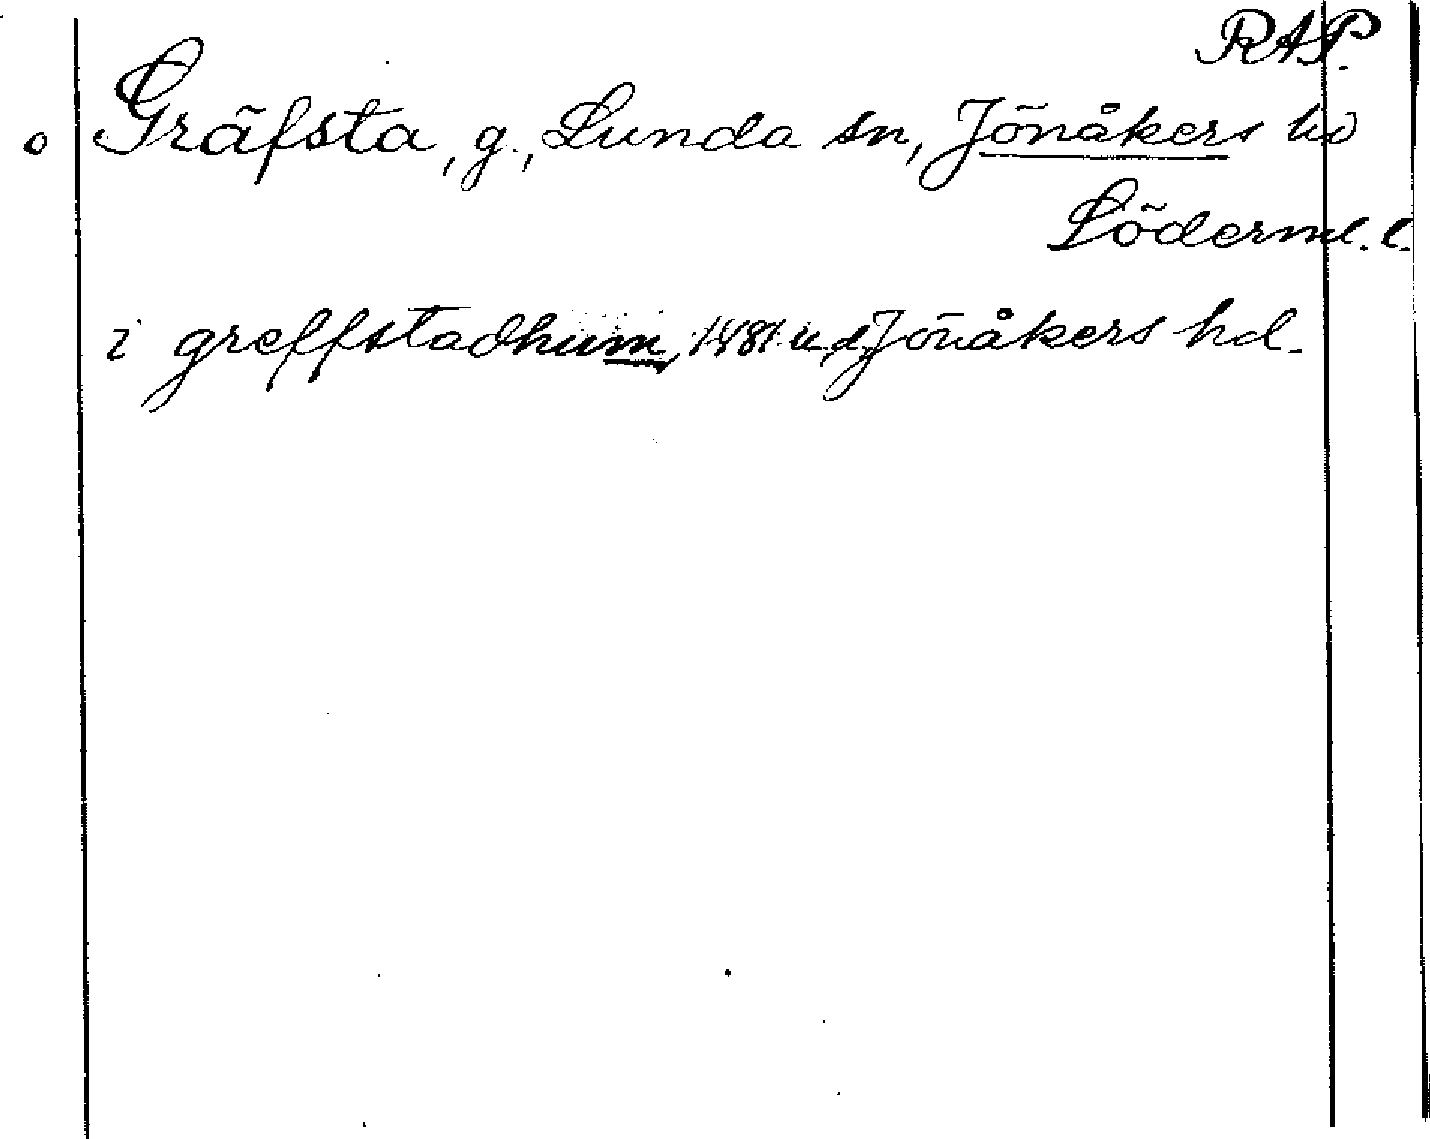 RAP.
o Gräfsta, g., Lunda sn, Jönåkers hd
Söderml. l.
i greffstadhum, 1481 u.d. Jönåkers hd.